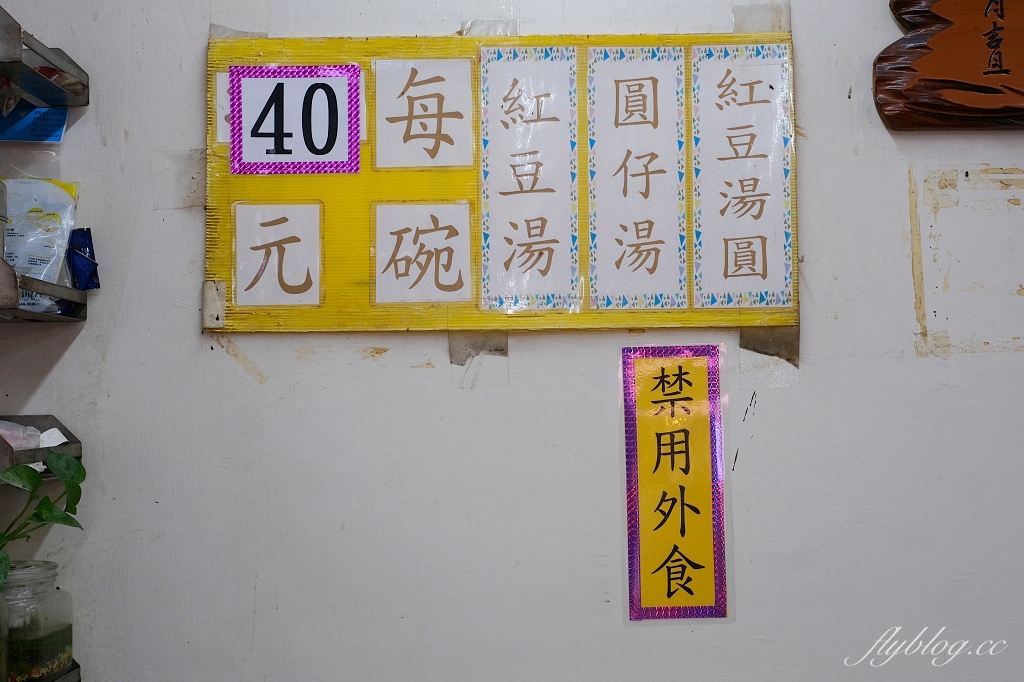 紅豆湯圓
圓仔湯
紅豆湯
每碗
40元
禁用外食
吉
flyblog.cc